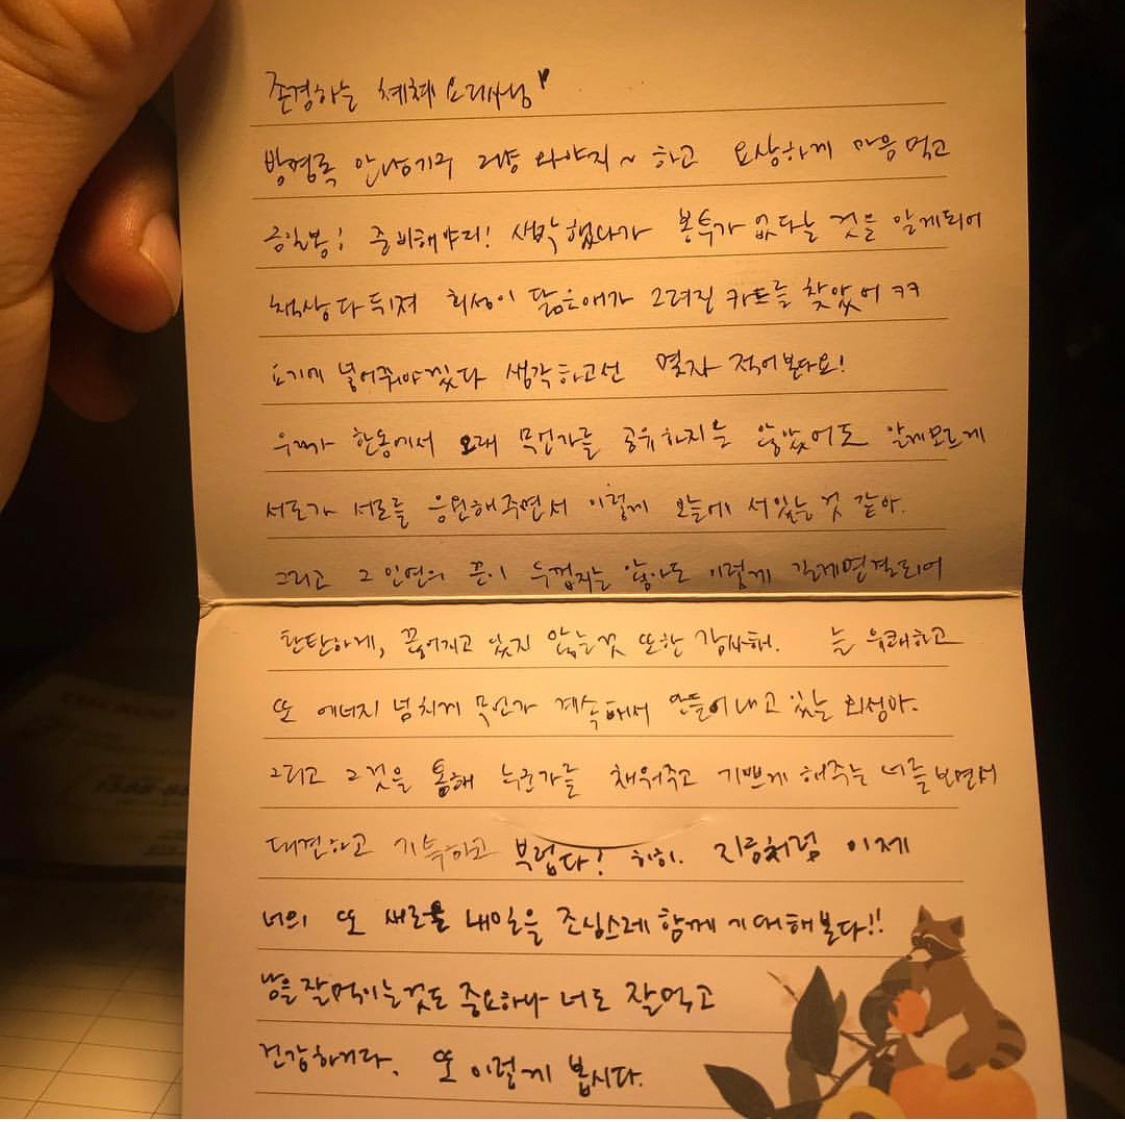 존경하는 체체요리사님♥
방명록 안남기구 걍 와야지~ 하고 요상하게 마음먹고
금일봉! 준비해야리! 생각했다가 봉투가 없다는 것을 알게되어
책상 다 뒤져 희성이 닮은애가 그려진 카드를 찾았어 ㅋㅋ
요기에 넣어줘야겠다 생각하고선 몇자 적어본다요!
우리가 한동에서 오래 무언가를 공유하지는 않았어도 알게모르게
서로가 서로를 응원해주면서 이렇게 오늘에 서있는 것 같아.
그리고 그 인연의 끈이 두껍지는 않아도 이렇게 길게연결되어
탄탄하게, 끊어지고 있지 않는것 또한 감사해. 늘 유쾌하고
또 에너지 넘치게 무언가 계속해서 만들어내고 있는 희성아.
그리고 그것을 통해 누군가를 채워주고 기쁘게 해주는 너를 보면서
대견하고 기특하고 부럽다! 히히. 지금처럼 이제
너의 또 새로울 내일을 조심스레 함께 기대해본다!!
남을 잘먹이는것도 중요하나 너도 잘먹고
건강하거라. 또 이렇게 봅시다.